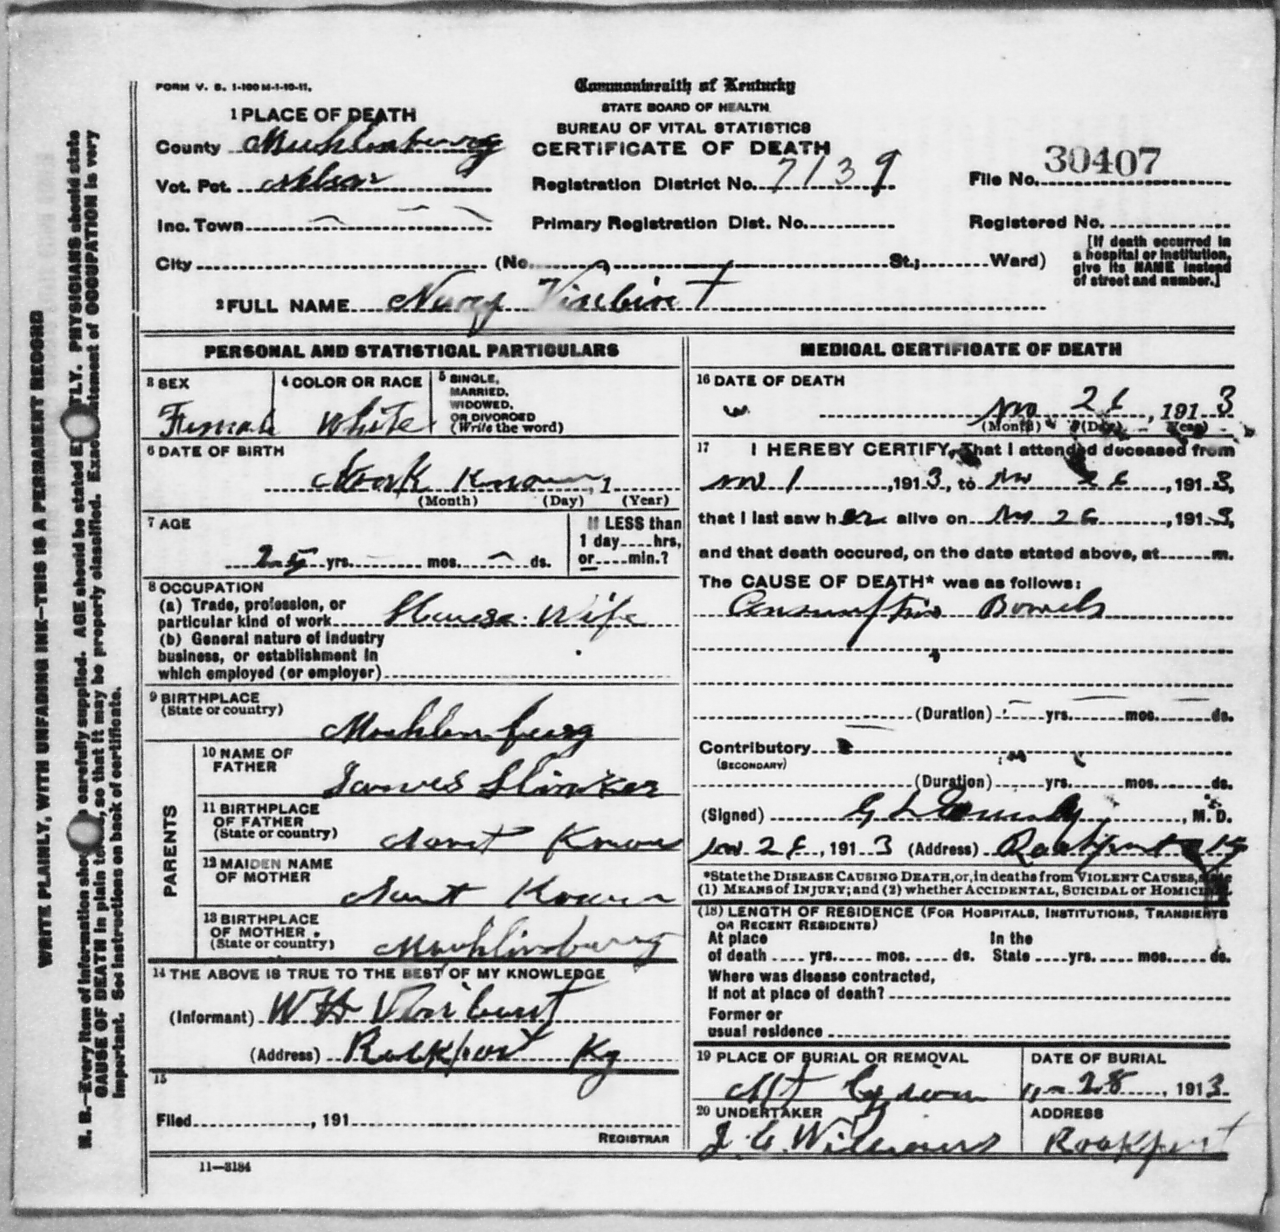 FORM V. S. 1-100M-1-10-11.
Commonwealth of Kentucky
STATE BOARD OF HEALTH
BUREAU OF VITAL STATISTICS
CERTIFICATE OF DEATH
1 PLACE OF DEATH
County Muhlenburg
Vot. Pct. Nelson
Registration District No. 7139
File No. 30407
Inc. Town
Primary Registration Dist. No.
Registered No.
City (No. St.; Ward)
[If death occurred in
a hospital or institution,
give its NAME instead
of street and number.]
2 FULL NAME
PERSONAL AND STATISTICAL PARTICULARS
3 SEX
Female
4 COLOR OR RACE
White
5 SINGLE,
MARRIED,
WIDOWED,
OR DIVORCED
(Write the word)
6 DATE OF BIRTH
, 1
(Month) (Day) (Year)
7 AGE
25 yrs. mos. ds.
If LESS than
1 day hrs,
or min.?
8 OCCUPATION
(a) Trade, profession, or
particular kind of work House Wife
(b) General nature of industry
business, or establishment in
which employed (or employer)
9 BIRTHPLACE
(State or country)
Muhlenburg
PARENTS
10 NAME OF
FATHER
James Slinker
11 BIRTHPLACE
OF FATHER
(State or country)
12 MAIDEN NAME
OF MOTHER
13 BIRTHPLACE
OF MOTHER
(State or country)
Muhlinburg
14 THE ABOVE IS TRUE TO THE BEST OF MY KNOWLEDGE
(Informant) W H
(Address) Rockport Ky
15
Filed , 191
REGISTRAR
11—3184
MEDICAL CERTIFICATE OF DEATH
16 DATE OF DEATH
Nov 26, 1913
(Month) (Day) Year)
17 I HEREBY CERTIFY, That I attended deceased from
Nov 1, 1913, to Nov 26, 1913,
that I last saw her alive on Nov 26, 1913,
and that death occured, on the date stated above, at m.
The CAUSE OF DEATH* was as follows:
Consumption Bowels
(Duration) yrs. mos. ds.
Contributory
(SECONDARY)
(Duration) yrs. mos. ds.
(Signed) , M. D.
Nov 26, 1913 (Address) Rockport Ky
*State the DISEASE CAUSING DEATH, or, in deaths from VIOLENT CAUSES, state
(1) MEANS of INJURY; and (2) whether ACCIDENTAL, SUICIDAL or HOMICIDAL.
(18) LENGTH OF RESIDENCE (FOR HOSPITALS, INSTITUTIONS, TRANSIENTS
OR RECENT RESIDENTS)
At place In the
of death yrs. mos. ds. State yrs. mos. ds.
Where was disease contracted,
If not at place of death?
Former or
usual residence
19 PLACE OF BURIAL OR REMOVAL
Mt
DATE OF BURIAL
11-28, 1913
20 UNDERTAKER
J. C. Williams
ADDRESS
Rockport
WRITE PLAINLY, WITH UNFADING INK—THIS IS A PERMANENT RECORD
N. B.—Every item of information should be carefully supplied. AGE should be stated EXACTLY. PHYSICIANS should state
CAUSE OF DEATH in plain terms, so that it may be properly classified. Exact statement of OCCUPATION is very
important. See instructions on back of certificate.